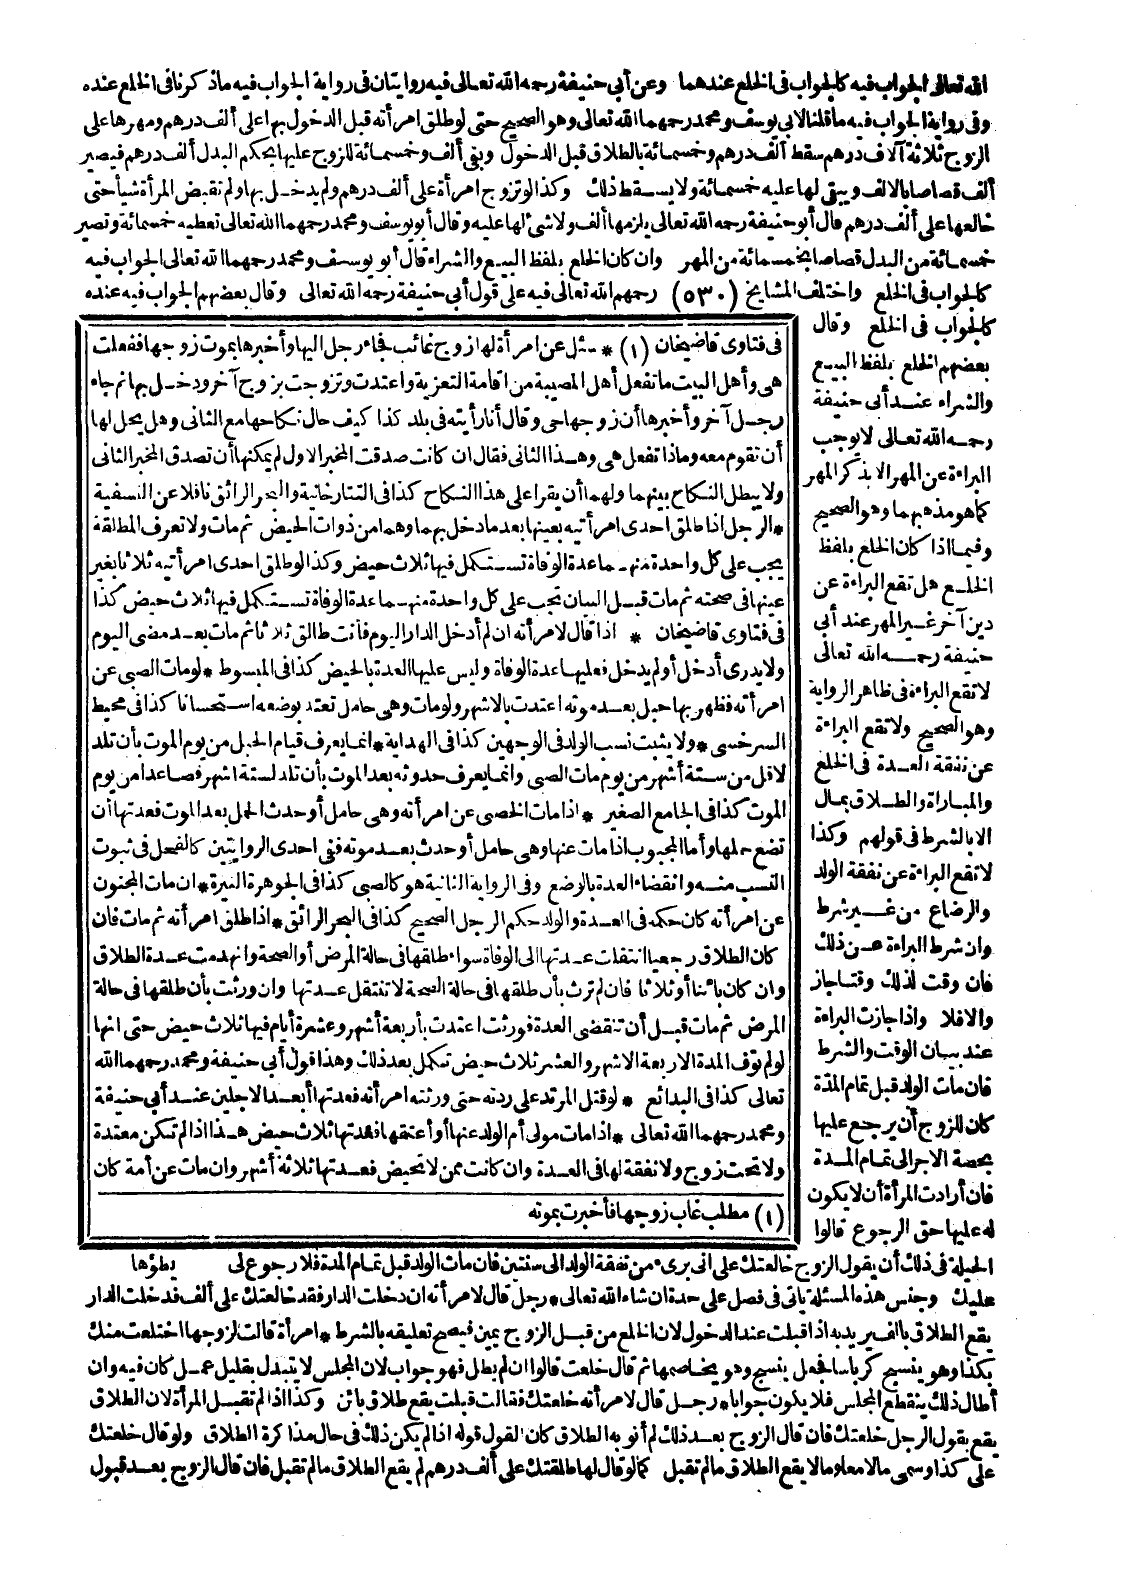 الله تعالى الجواب فيه كالجواب فى الخلع عندهما وعن أبى حنيفة رحمه الله تعالى فيه روايتان فى رواية الجواب فيه ماذكرنا فى الخلع عنده
وفى رواية الجواب فيه ماقلنا لابى يوسف ومحمد رحمهما الله تعالى وهو الصحيح حتى لو طلق امرأته قبل الدخول بها على ألف درهم ومهرها على
الزوج ثلاثة آلاف درهم سقط ألف درهم وخمسمائة بالطلاق قبل الدخول وبقى ألف وخمسمائة للزوج عليها بحكم البدل ألف درهم فيصير
ألف قصاصا بالالف ويبقى لها عليه خمسمائة ولا يسقط ذلك وكذا لو تزوج امرأة على ألف درهم ولم يدخل بها ولم تقبض المرأة شيأ حتى
خالعها على ألف درهم قال أبو حنيفة رحمه الله تعالى يلزمها ألف ولا شئ لها عليه وقال أبو يوسف ومحمد رحمهما الله تعالى تعطيه خمسمائة وتصير
خمسمائة من البدل قصاصا بخمسمائة من المهر وان كان الخلع بلفظ البيع والشراء قال أبو يوسف ومحمد رحمهما الله تعالى الجواب فيه
كالجواب فى الخلع واختلف المشايخ (٥٣٠) رحمهم الله تعالى فيه على قول أبى حنيفة رحمه الله تعالى وقال بعضهم الجواب فيه عنده
كالجواب فى الخلع وقال
بعضهم الخلع بلفظ البيع
والشراء عند أبى حنيفة
رحمه الله تعالى لا يوجب
البراءة عن المهر الا بذكر المهر
كما هو مذهبهما وهو الصحيح
وفيما اذا كان الخلع بلفظ
الخلع هل تقع البراءة عن
دين آخر غير المهر عند أبى
حنيفة رحمه الله تعالى
لا تقع البراءة فى ظاهر الرواية
وهو الصحيح ولا تقع البراءة
عن نفقة العدة فى الخلع
والمباراة والطلاق بمال
الا بالشرط فى قولهم وكذا
لا تقع البراءة عن نفقة الولد
والرضاع من غير شرط
وان شرط البراءة عن ذلك
فان وقت لذلك وقتا جاز
والا فلا واذا جازت البراءة
عند بيان الوقت والشرط
فان مات الولد قبل تمام المدة
كان للزوج أن يرجع عليها
بحصة الاجر الى تمام المدة
فان أرادت المرأة أن لا يكون
له عليها حق الرجوع قالوا
فى فتاوى قاضيخان (١) * سئل عن امرأة لها زوج غائب فجاء رجل اليها وأخبرها بموت زوجها ففعلت
هى وأهل البيت ما تفعل أهل المصيبة من اقامة التعزية واعتدت وتزوجت بزوج آخر ودخل بها ثم جاء
رجل آخر وأخبرها أن زوجها حى وقال أنا رأيته فى بلد كذا كيف حال نكاحها مع الثانى وهل يحل لها
أن تقوم معه وماذا تفعل هى وهذا الثانى فقال ان كانت صدقت المخبر الاول لم يمكنها أن تصدق المخبر الثانى
ولا يبطل النكاح بينهما ولهما أن يقرا على هذا النكاح كذا فى التتارخانية والبحر الرائق نافلا عن النسفية
* الرجل اذا طلق احدى امرأتيه بعينها بعد ما دخل بهما وهما من ذوات الحيض ثم مات ولا تعرف المطلقة
يجب على كل واحدة منهما عدة الوفاة تستكمل فيها ثلاث حيض وكذا لو طلق احدى امرأتيه ثلاثا بغير
عينها فى صحته ثم مات قبل البيان يجب على كل واحدة منهما عدة الوفاة تستكمل فيها ثلاث حيض كذا
فى فتاوى قاضيخان * اذا قال لامرأته ان لم أدخل الدار اليوم فأنت طالق ثلاثا ثم مات بعد مضى اليوم
ولا يدرى أدخل أو لم يدخل فعليها عدة الوفاة وليس عليها العدة بالحيض كذا فى المبسوط * لو مات الصبى عن
امرأته فظهر بها حبل بعد موته اعتدت بالاشهر ولو مات وهى حامل تعتد بوضعه استحسانا كذا فى محيط
السرخسى * ولا يثبت نسب الولد فى الوجهين كذا فى الهداية * انما يعرف قيام الحبل من يوم الموت بأن تلد
لاقل من ستة أشهر من يوم مات الصبى وانما يعرف حدوثه بعد الموت بأن تلد لستة اشهر فصاعدا من يوم
الموت كذا فى الجامع الصغير * اذا مات الخصى عن امرأته وهى حامل أو حدث الحمل بعد الموت فعدتها أن
تضع حملها وأما المجبوب اذا مات عنها وهى حامل أو حدث بعد موته ففى احدى الروايتين كالفحل فى ثبوت
النسب منه وانقضاء العدة بالوضع وفى الرواية الثانية هو كالصبى كذا فى الجوهرة النيرة * ان مات المجنون
عن امرأته كان حكمه فى العدة والولد حكم الرجل الصحيح كذا فى البحر الرائق * اذا طلق امرأته ثم مات فان
كان الطلاق رجعيا انتقلت عدتها الى الوفاة سواء طلقها فى حالة المرض أو الصحة وانهدمت عدة الطلاق
وان كان بائنا أو ثلاثا فان لم ترث بأن طلقها فى حالة الصحة لا تنتقل عدتها وان ورثت بأن طلقها فى حالة
المرض ثم مات قبل أن تنقضى العدة فورثت اعتدت بأربعة أشهر وعشرة أيام فيها ثلاث حيض حتى انها
لو لم توف المدة الاربعة الاشهر والعشر ثلاث حيض تكمل بعد ذلك وهذا قول أبى حنيفة ومحمد رحمهما الله
تعالى كذا فى البدائع * لو قتل المرتد على ردته حتى ورثته امرأته فعدتها أبعد الاجلين عند أبى حنيفة
ومحمد رحمهما الله تعالى * اذا مات مولى أم الولد عنها أو أعتقها فعدتها ثلاث حيض هذا اذا لم تكن معتدة
ولا تحت زوج ولا نفقة لها فى العدة وان كانت ممن لا تحيض فعدتها ثلاثة أشهر وان مات عن أمة كان
(١) مطلب غاب زوجها فأخبرت بموته
الحيلة فى ذلك أن يقول الزوج خالعتك على انى برىء من نفقة الولد الى سنتين فان مات الولد قبل تمام المدة فلا رجوع لى يطؤها
عليك وجنس هذه المسئلة يأتى فى فصل على حدة ان شاء الله تعالى * رجل قال لامرأته ان دخلت الدار فقد خالعتك على ألف فدخلت الدار
يقع الطلاق بالف يريد به اذا قبلت عند الدخول لان الخلع من قبل الزوج يمين فيصح تعليقه بالشرط * امرأة قالت لزوجها اختلعت منك
بكذا وهو ينسج كرباسا فجعل ينسج وهو يخاصمها ثم قال خلعت قالوا ان لم يطل فهو جواب لان المجلس لا يتبدل بقليل عمل كان فيه وان
أطال ذلك ينقطع المجلس فلا يكون جوابا * رجل قال لامرأته خلعتك فقالت قبلت يقع طلاق بائن وكذا اذا لم تقبل المرأة لان الطلاق
يقع بقول الرجل خلعتك فان قال الزوج بعد ذلك لم أنو به الطلاق كان القول قوله اذا لم يكن ذلك فى حال مذاكرة الطلاق ولو قال خلعتك
على كذا وسمى مالا معلوما لا يقع الطلاق ما لم تقبل كما لو قال لها طلقتك على ألف درهم لم يقع الطلاق ما لم تقبل فان قال الزوج بعد قبول